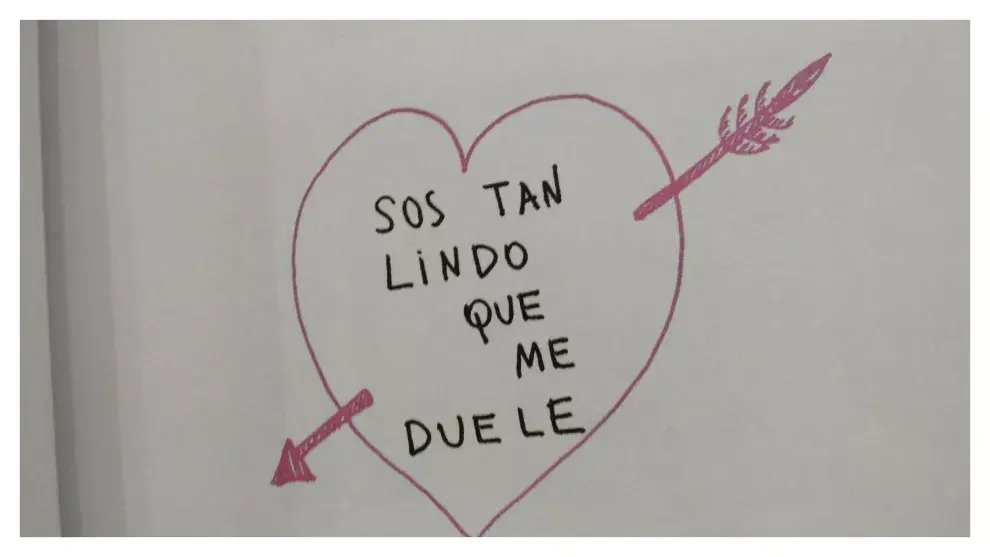 SOS TAN
LiNDO
QUE
ME
DUELE